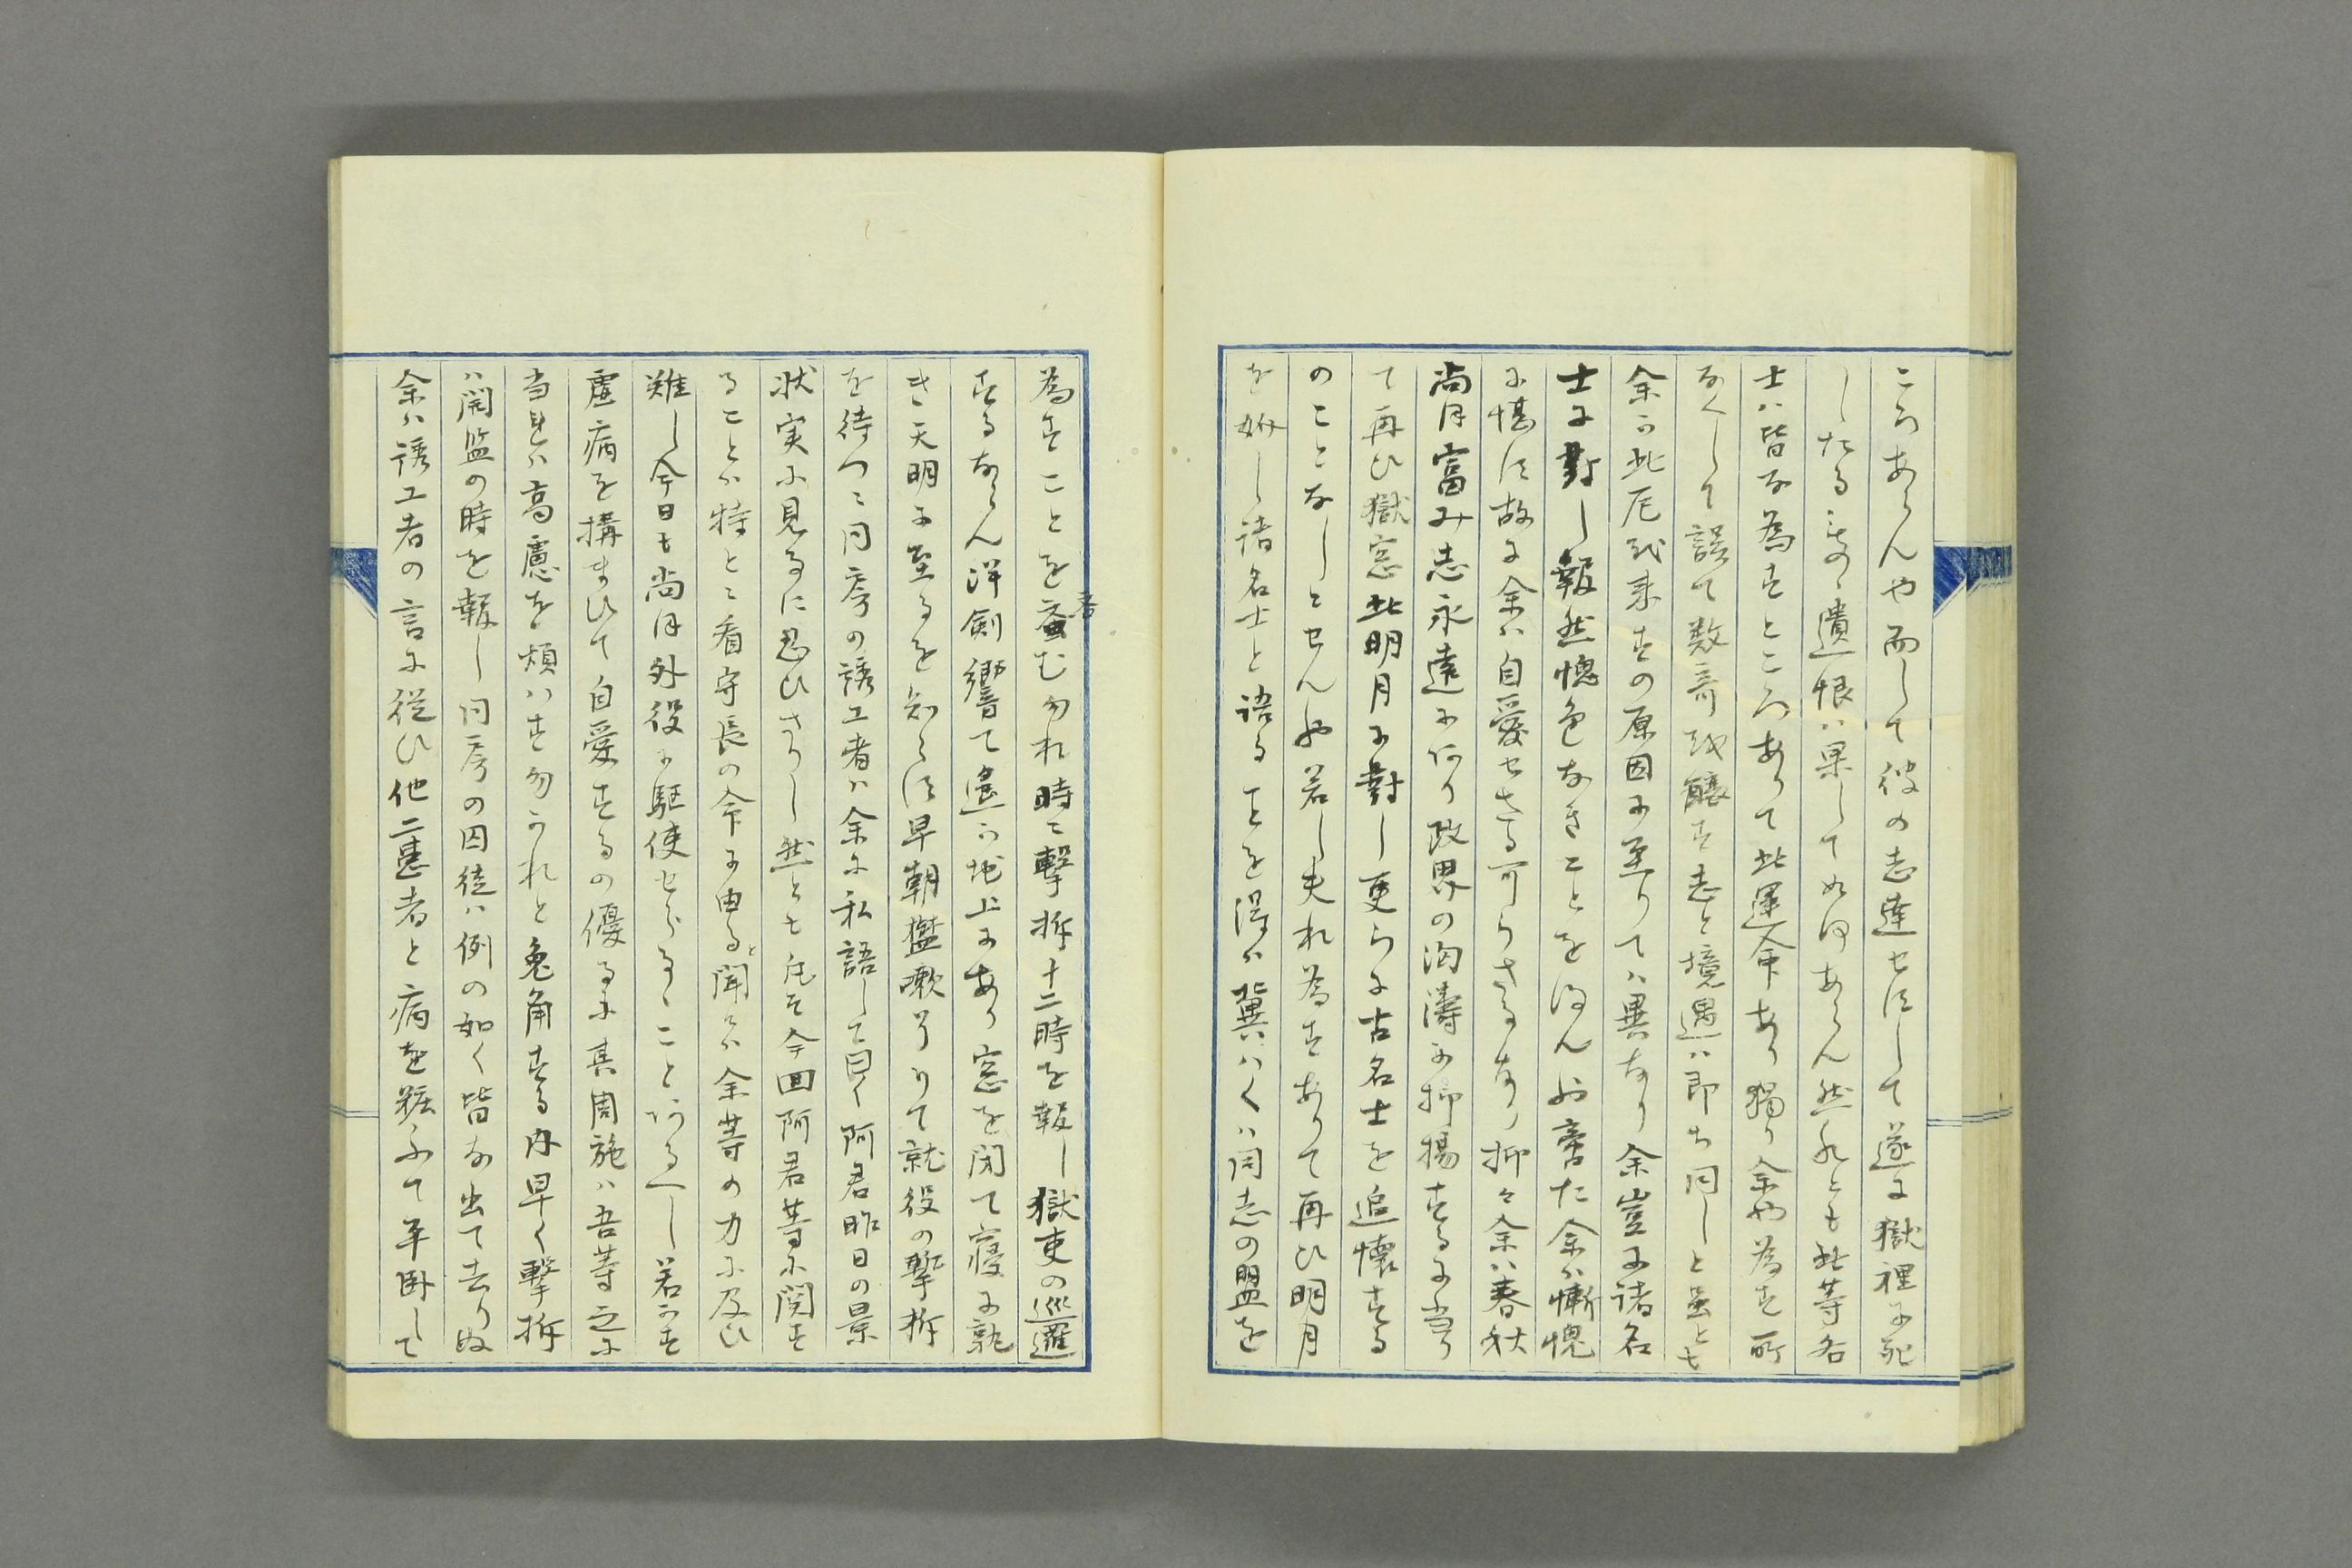 ころあらんや而して彼の志達せすして遂に獄裡に死
したるその遺恨は果して如何あらん然れとも此等名
士は皆な為すところありて此運命あり獨り余や為す所
なくして誤て数奇を醸す志と境遇は即ち同しと虽とも
余か此厄を来すの原因に至りては異なり余豈に諸名
士に對し報然愧色なきことを得んや啻た余は慚愧
に堪す故に余は自愛せさる可らさるなり抑々余は春秋
尚ほ富み志永遠にあり政界の汹濤に抑揚するに当り
て再ひ獄窓此明月に對し更らに古名士を追懐する
のことなしとせんや若し夫れ為すありて再ひ明月
を と諸名士と語ることを得は冀はくは同志の盟を
為すことを吝む勿れ時に撃柝十二時を報し獄吏の巡邏
するあらん洋剣響て遙か地上にあり窓を閉て寝に就
き天明に至るを知らす早朝盥漱了りて就役の撃柝
を待つに同房の誘工者は余に私語して曰く阿君昨日の景
状実に見るに忍ひさりし然とも凡そ今回阿君等に関す
ることは特とに看守長の命に由ると聞けは余等の力に及ひ
難し今日も尚ほ外役に駆使せらるゝことあるへし若かす
虚病を構まひて自愛するの優るに其周施は吾等之に
当れは高慮を煩はす勿かれと兎角する内早く撃柝
は開監の時を報し同房の囚徒は例の如く皆な出て去りぬ
余は誘工者の言に従ひ他二患者と病を粧ふて平臥して